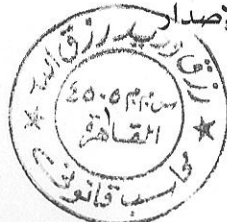 الإصدار
رزق وديد رزق الله
س.م.م ٤٥٠٥
القاهرة
محاسب قانونى